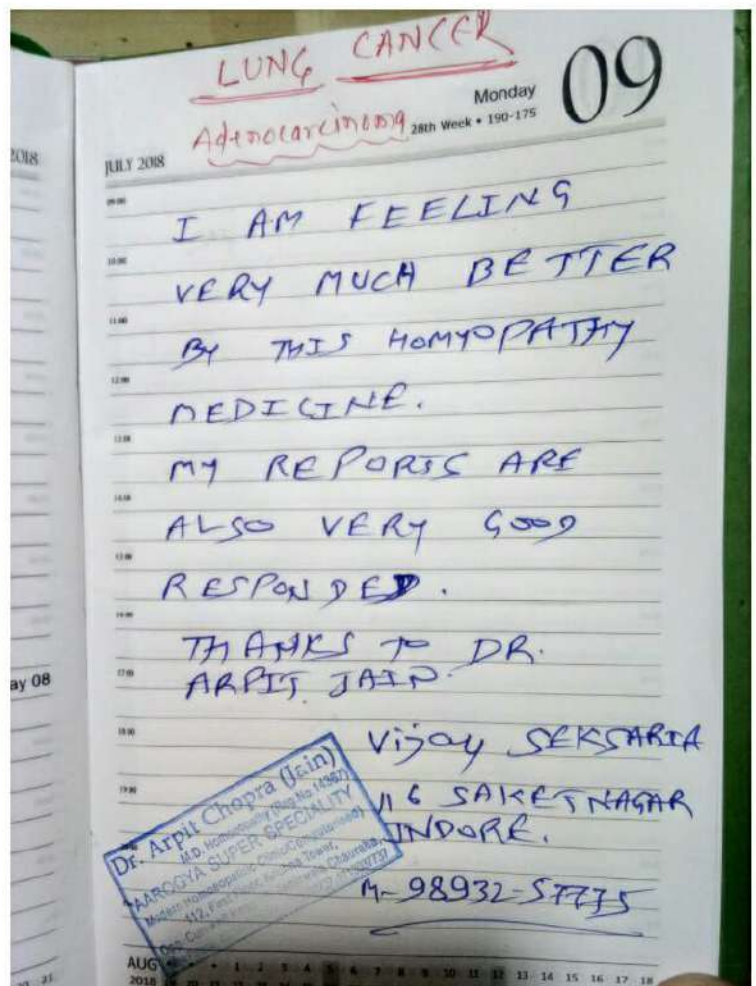 LUNG CANCER
Adenocarcinoma
Monday
09
28th Week • 190-175
2018
JULY 2018
09:00
I AM FEELING
10:00
VERY MUCH BETTER
11:00
BY THIS HOMYOPATHY
12:00
MEDICINE.
13:00
MY REPORTS ARE
14:00
ALSO VERY GOOD
15:00
RESPONDED.
16:00
THANKS TO DR.
17:00
ARPIT JAIN.
ay 08
18:00
Vijay SEKSARIA
19:00
116 SAKET NAGAR
INDORE.
M- 98932-57775
Dr. Arpit Chopra (Jain)
M.D. Homoeopathy (Reg No 14367)
AAROGYA SUPER SPECIALITY
Modern Homoeopathic Clinic(Computerised)
112, First Floor, Krishna Tower,
AUG
2018
1 2 3 4 5 6 7 8 9 10 11 12 13 14 15 16 17 18